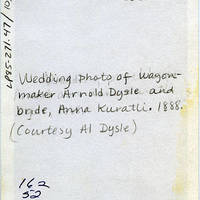 Wedding photo of Wagon-
maker Arnold Dysle and
bride, Anna Kuratli. 1888.
(Courtesy Al Dysle)
162
52